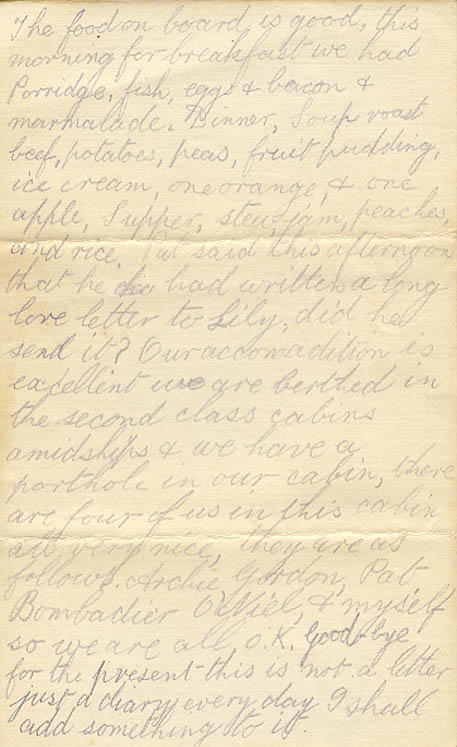 The food on board is good, this
morning for breakfast we had
Porridge, fish, eggs & bacon &
marmalade. Dinner, Soup roast
beef, potatoes, peas, fruit pudding,
ice cream, one orange, & one
apple, Supper, stew, jam, peaches,
and rice. Pat said this afternoon
that he had written a long
love letter to Lily, did he
send it? Our accomadition is
excellent we are berthed in
the second class cabins
amidships & we have a
porthole in our cabin, there
are four of us in this cabin
all very nice, they are as
follows. Archie Gordon, Pat
Bombadier O'Niel, & myself
so we are all O.K. Good-bye
for the present this is not a letter
just a diary every day I shall
add something to it.